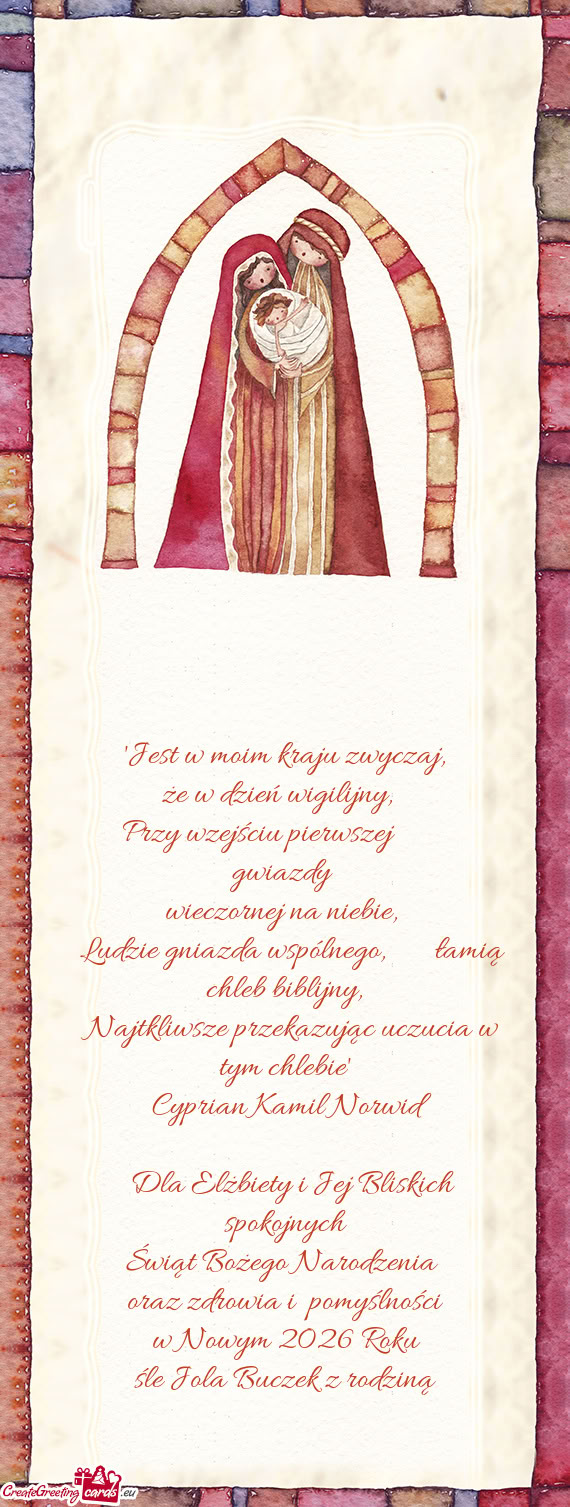 'Jest w moim kraju zwyczaj,
że w dzień wigilijny,
Przy wzejściu pierwszej
gwiazdy
wieczornej na niebie,
Ludzie gniazda wspólnego, łamią
chleb biblijny,
Najtkliwsze przekazując uczucia w
tym chlebie'
Cyprian Kamil Norwid
Dla Elżbiety i Jej Bliskich
spokojnych
Świąt Bożego Narodzenia
oraz zdrowia i pomyślności
w Nowym 2026 Roku
śle Jola Buczek z rodziną
CreateGreeting cards .eu